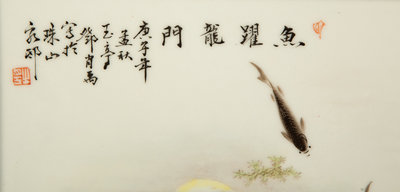 魚躍龍門
庚子年
孟秋
玉亭
鄧肖禹
寫於
珠山
客邸